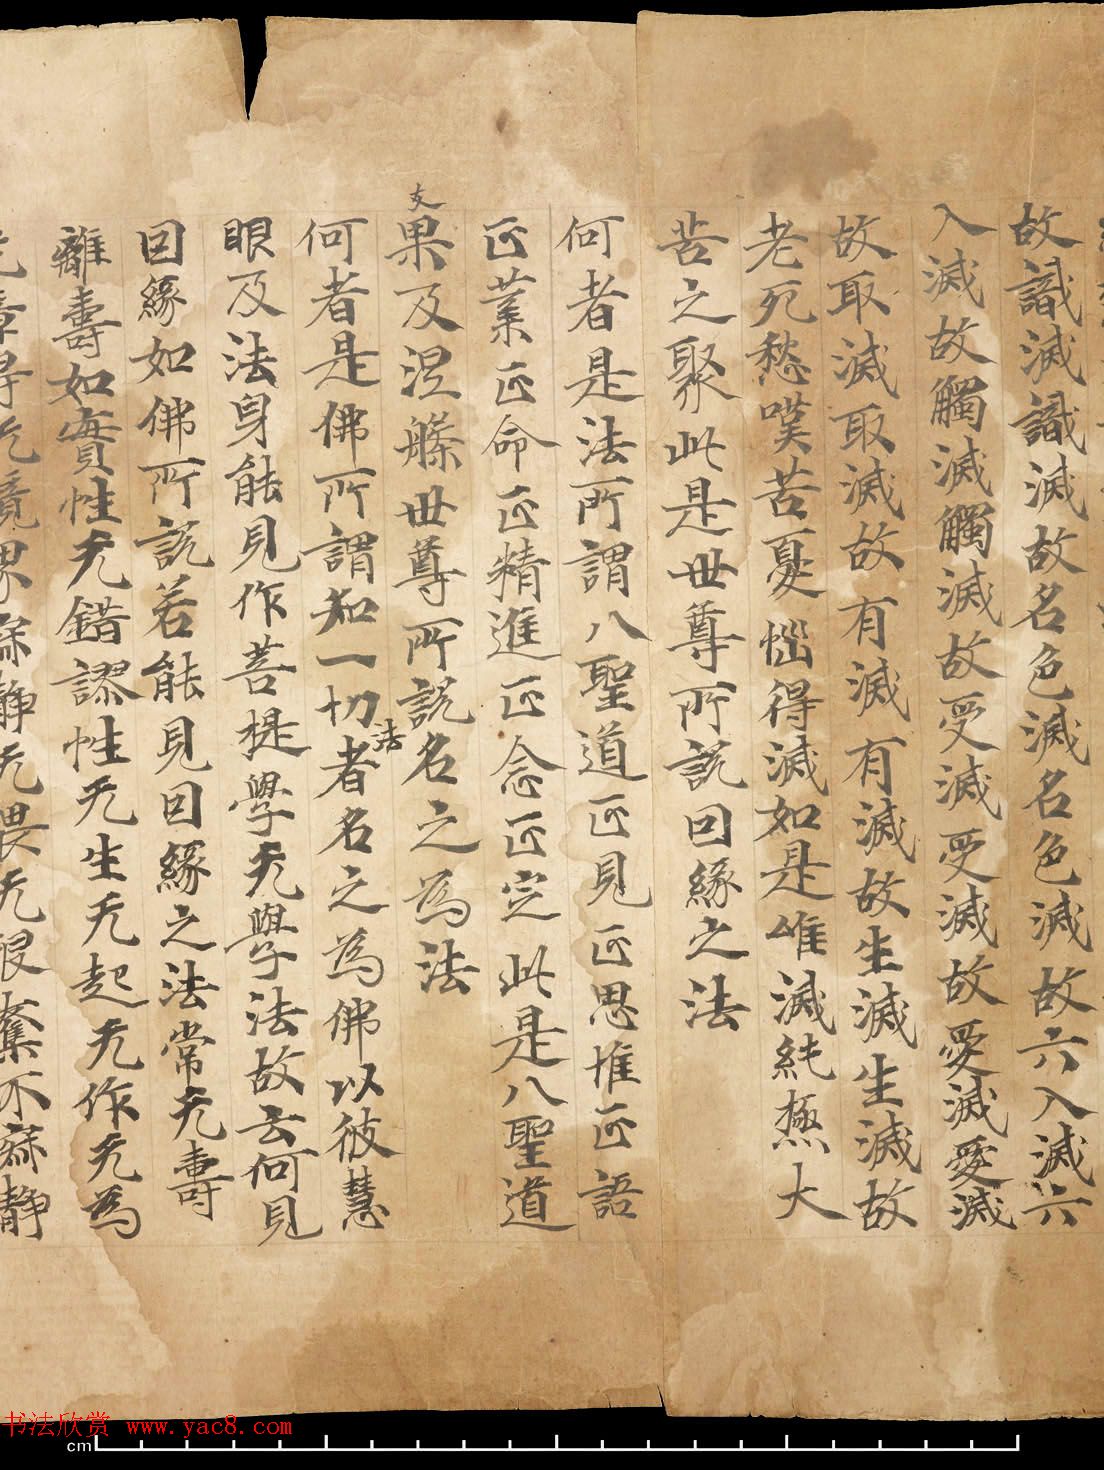 故識滅識滅故名色滅名色滅故六入滅六
入滅故觸滅觸滅故受滅受滅故愛滅愛滅
故取滅取滅故有滅有滅故生滅生滅故
老死愁嘆苦憂惱得滅如是唯滅純極大
苦之聚此是世尊所說回緣之法
何者是法所謂八聖道正見正思惟正語
正業正命正精進正念正定此是八聖道
支
果及涅槃世尊所說名之為法
何者是佛所謂知一切者名之為佛以彼慧
法
眼及法身能見作菩提學无學法故云何見
回緣如佛所說若能見回緣之法常无壽
離壽如實性无錯謬性无生无起无作无為
无障㝵无境界寂靜无畏无侵奪不寂靜
书法欣赏 www.yac8.com
cm